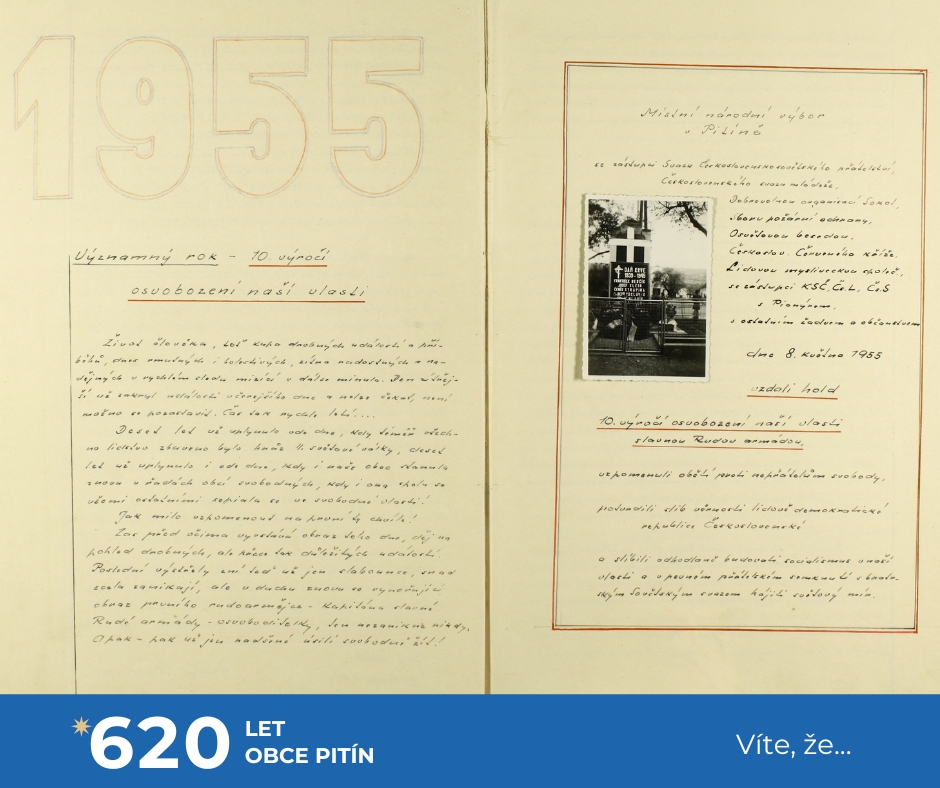 1955
Významný rok - 10. výročí
osvobození naší vlasti
Život člověka, toť kupa drobných událostí a pří-
běhů, dnes smutných i bolestivých, zítra radostných a na-
dějných v rychlém sledu mizící v dálce minula. Den zítřej-
ší už zakryl události včerejšího dne a nelze čekat, není
možno se pozastavit. Čas tak rychle letí....
Deset let už uplynulo ode dne, kdy téměř všech-
no lidstvo zbaveno bylo hrůz II. světové války, deset
let už uplynulo i ode dne, kdy i naše obec stanula
znovu v řadách obcí svobodných, kdy i ona spolu se
všemi ostatními zapjala se ve svobodné vlasti!
Jak milo vzpomenout na první ty chvíle!
Zas před očima vyvstává obraz toho dne, dej na
pohled drobných, ale přece tak důležitých událostí.
Poslední výstřely zní teď už jen slabounce, snad
zcela zanikají, ale v duchu znovu se vynořující
obraz prvního rudoarmějce - kapitána slavné
Rudé armády - osvoboditelky, ten nezanikne nikdy.
A pak - pak už jen nadšené úsilí svobodně žít!
Místní národní výbor
v Pitíně
se zástupci Svazu Československosovětského přátelství,
Československého svazu mládeže,
Dobrovolnou organisací Sokol,
Sboru požární ochrany,
Osvětovou besedou,
Českoslov. Červeného kříže,
Lidovou mysliveckou společ.,
se zástupci KSČ, Čs.L., Čs.S
s Pionýrem,
s ostatním žactvem a občanstvem
dne 8. května 1955
vzdali hold
10. výročí osvobození naší vlasti
slavnou Rudou armádou,
vzpomenuli obětí proti nepřátelům svobody,
potvrdili slib věrnosti lidově demokratické
republice Československé
a slíbili odhodlaně budovati socialismus v naší
vlasti a v pevném přátelském semknutí s bratr-
ským Sovětským svazem hájiti světový mír.
DAŇ KRVE
1939-1945
620 LET
OBCE PITÍN
Víte, že...